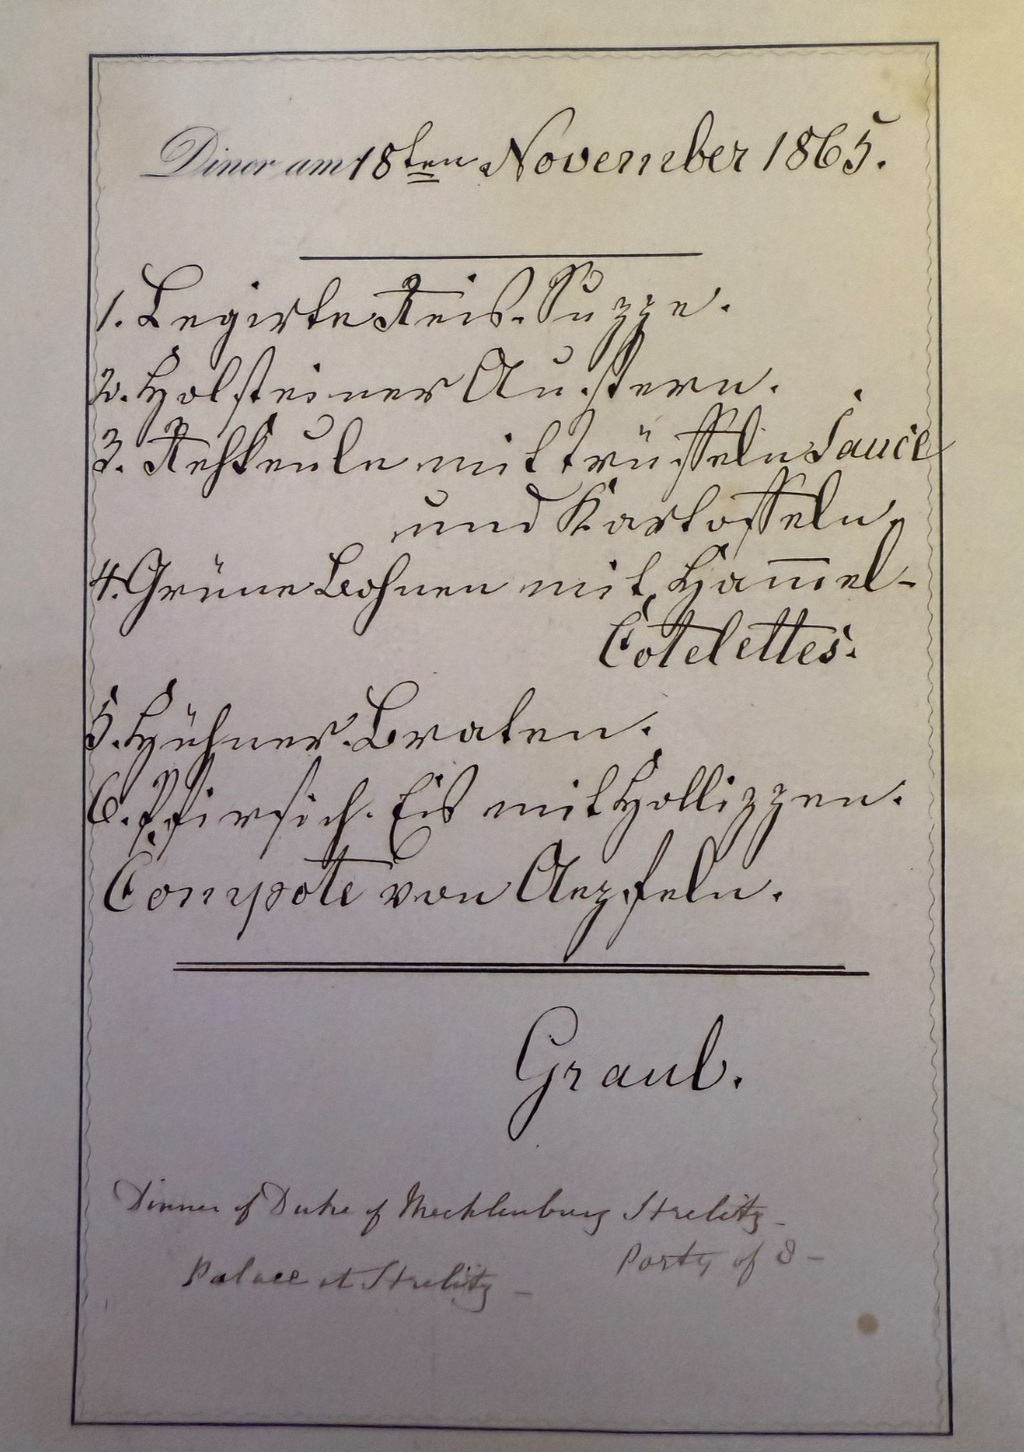 Diner am 18ten November 1865.
1. Legirte Reis-Suppe.
2. Holsteiner Austern.
3. Rehkeule mit trüffeln Sauce
und Kartoffeln,
4. Grüne Bohnen mit Ham̅el-
Cotelettes.
5. Hühner-Braten.
6. Pfirsich-Eis mit Hollippen.
Compote von Aepfeln.
Graul.
Dinner of Duke of Mecklenburg Strelitz -
Palace at Strelitz - Party of 8 -